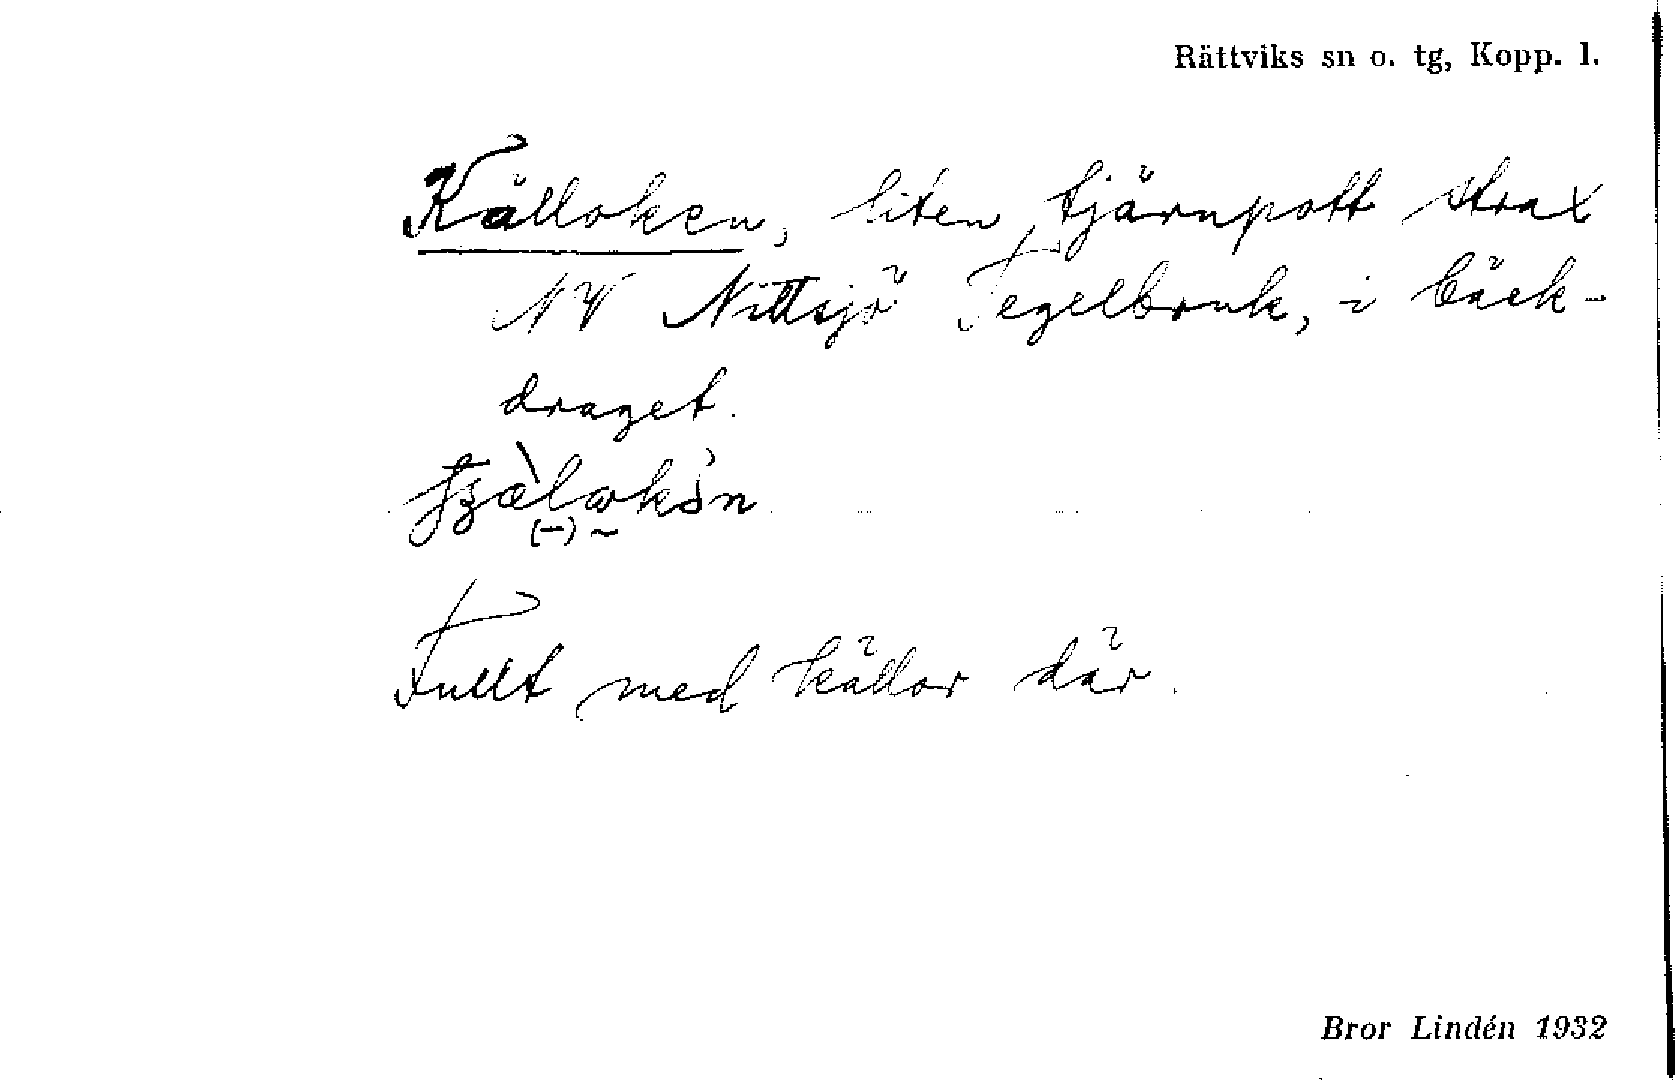 Rättviks sn o. tg, Kopp. l.
Källoken, liten tjärnpott strax
NV Nittsjö Tegelbruk, i bäck-
draget.
Fullt med källor där.
Bror Lindén 1932